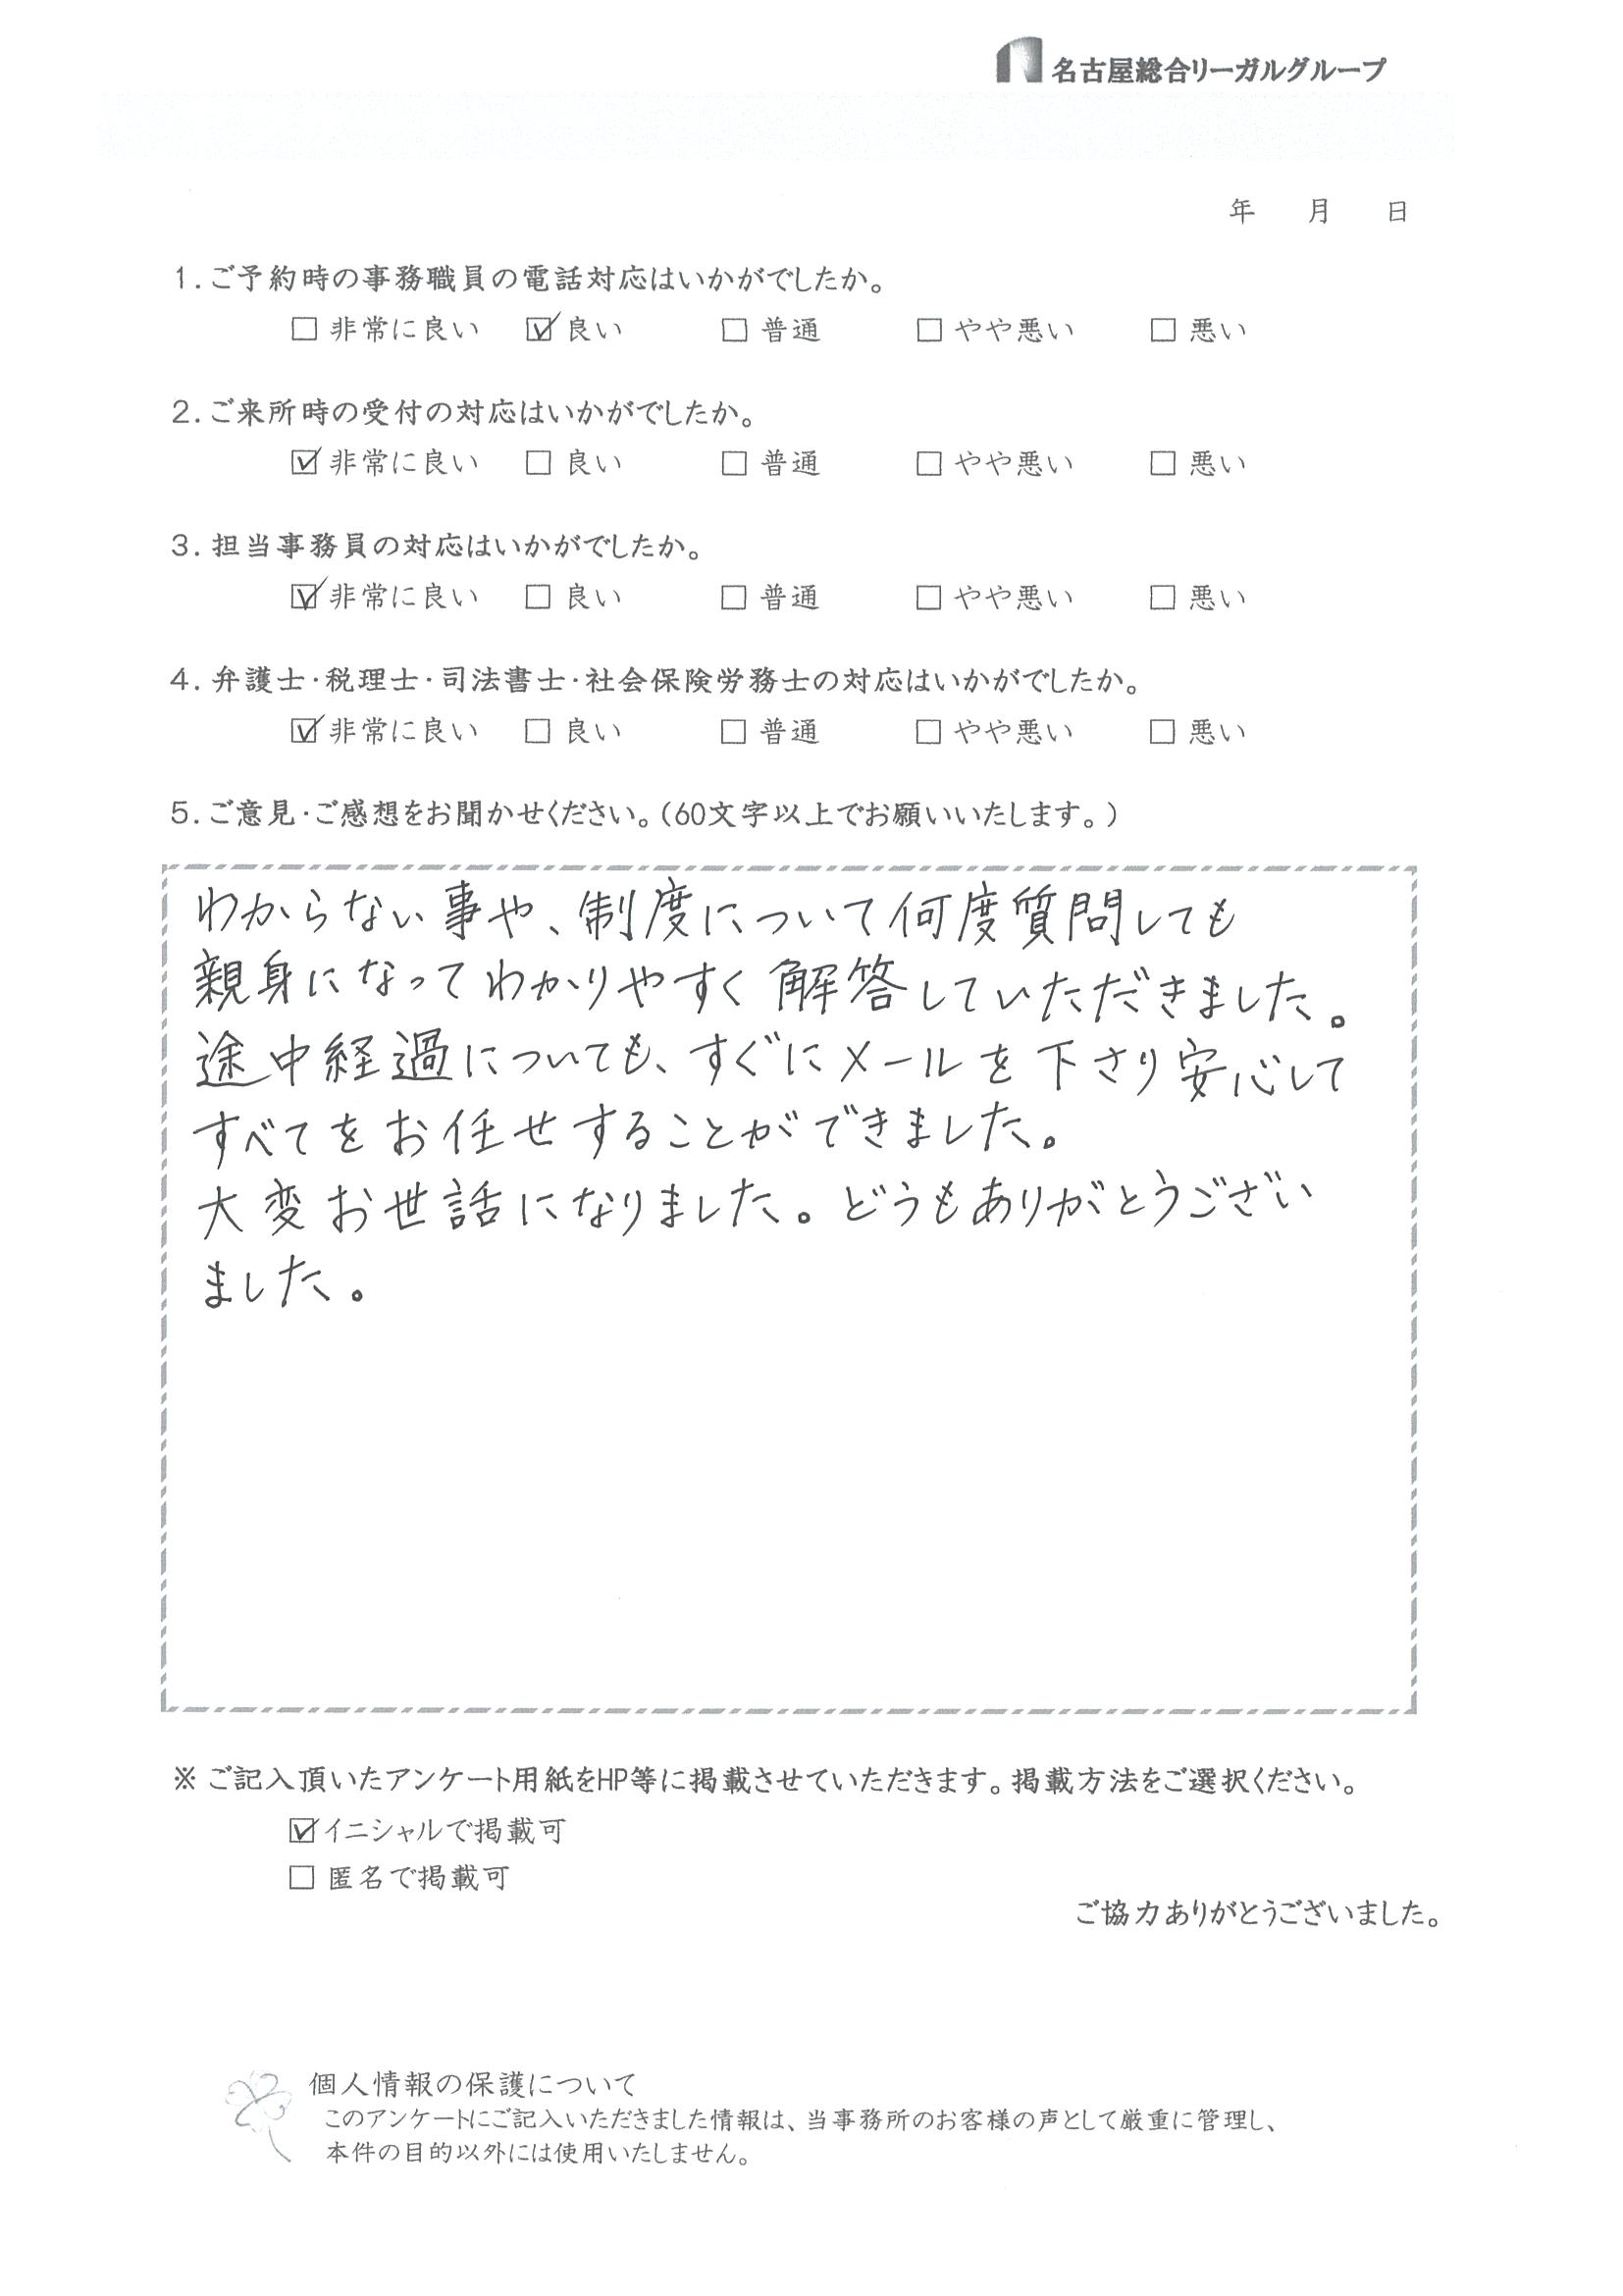 名古屋総合リーガルグループ
年 月 日
1. ご予約時の事務職員の電話対応はいかがでしたか。
□ 非常に良い ☑ 良い □ 普通 □ やや悪い □ 悪い
2. ご来所時の受付の対応はいかがでしたか。
☑ 非常に良い □ 良い □ 普通 □ やや悪い □ 悪い
3. 担当事務員の対応はいかがでしたか。
☑ 非常に良い □ 良い □ 普通 □ やや悪い □ 悪い
4. 弁護士・税理士・司法書士・社会保険労務士の対応はいかがでしたか。
☑ 非常に良い □ 良い □ 普通 □ やや悪い □ 悪い
5. ご意見・ご感想をお聞かせください。(60文字以上でお願いいたします。)
わからない事や、制度について何度質問しても
親身になってわかりやすく解答していただきました。
途中経過についても、すぐにメールを下さり安心して
すべてをお任せすることができました。
大変お世話になりました。どうもありがとうござい
ました。
※ ご記入頂いたアンケート用紙をHP等に掲載させていただきます。掲載方法をご選択ください。
☑ イニシャルで掲載可
□ 匿名で掲載可
ご協力ありがとうございました。
個人情報の保護について
このアンケートにご記入いただきました情報は、当事務所のお客様の声として厳重に管理し、
本件の目的以外には使用いたしません。